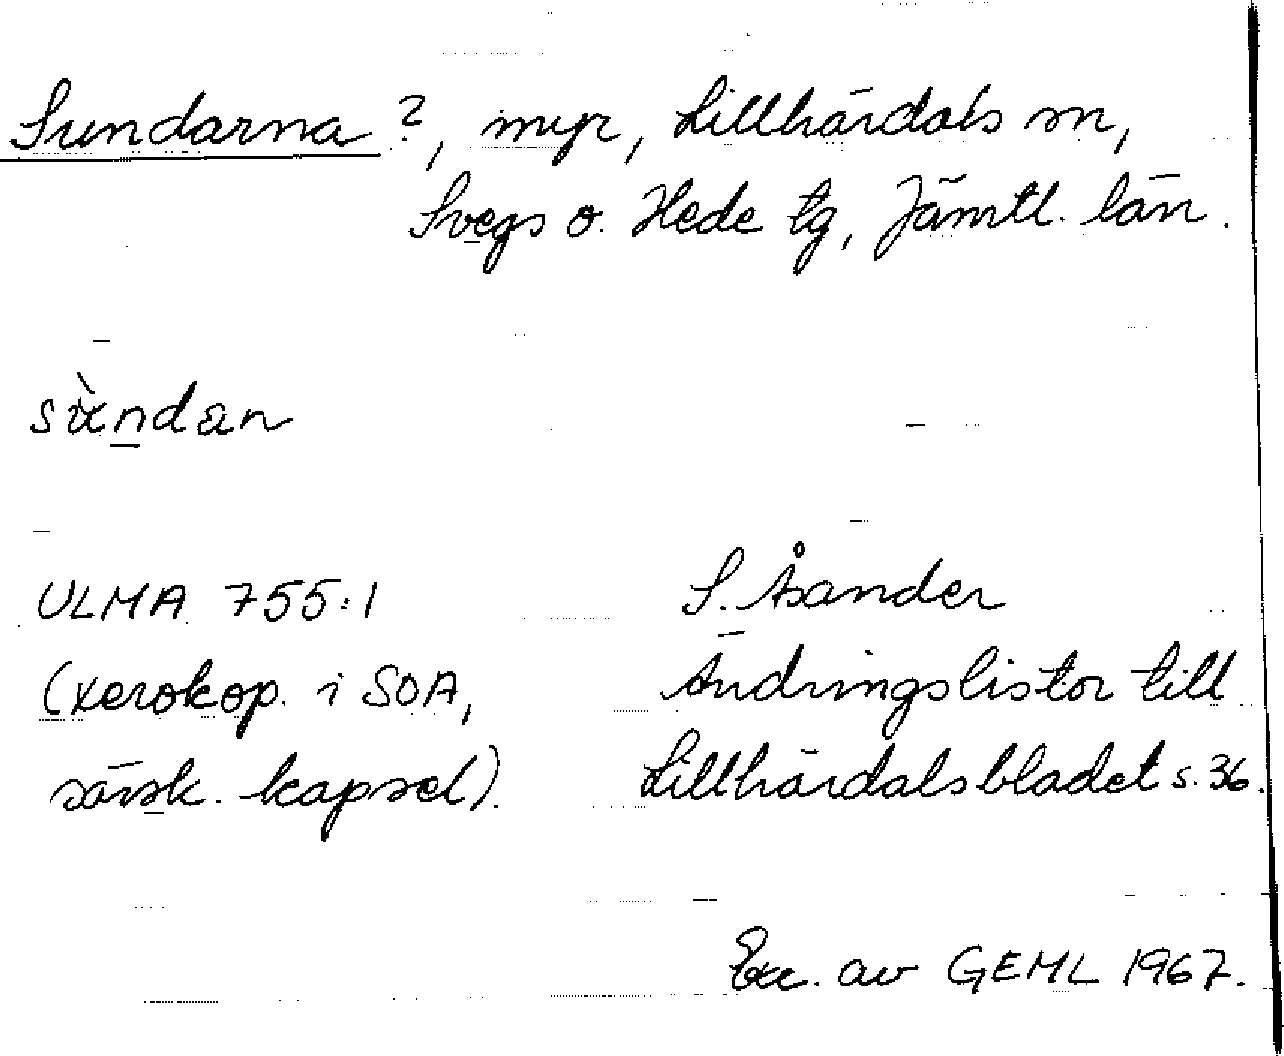 Sundarna ?, myr, Lillhärdals sn,
Svegs o. Hede tg, Jämtl. län.
sùndan
ULMA 755:1
S. Åsander
(xerokop. i SOA,
Ändringslistor till
särsk. kapsel).
Lillhärdalsbladet s. 36.
Exc. av GEML 1967.